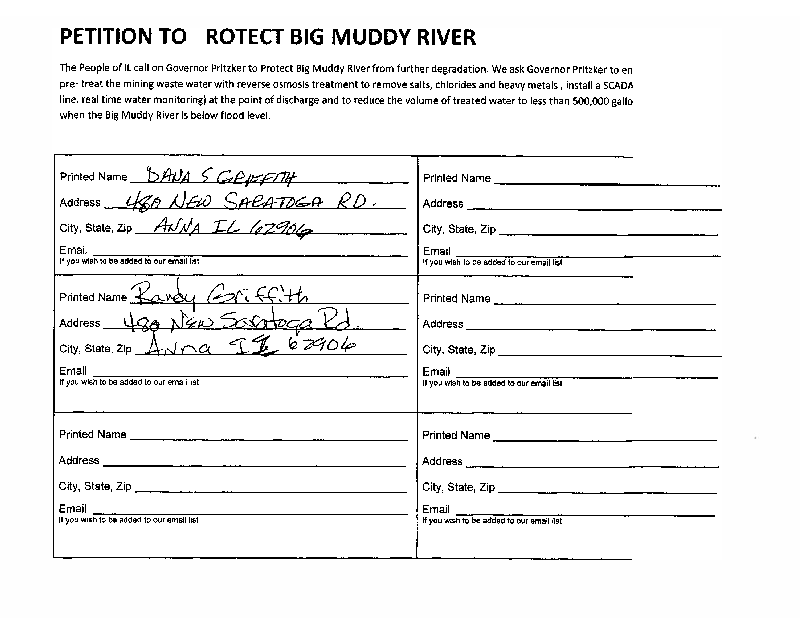 PETITION TO ROTECT BIG MUDDY RIVER
The People of IL call on Governor Pritzker to Protect Big Muddy River from further degradation. We ask Governor Pritzker to en
pre- treat the mining waste water with reverse osmosis treatment to remove salts, chlorides and heavy metals , install a SCADA
line. real time water monitoring) at the point of discharge and to reduce the volume of treated water to less than 500,000 gallo
when the Big Muddy River is below flood level.
Printed Name DANA S GRIFFITH
Address 480 NEW SARATOGA RD.
City, State, Zip ANNA IL 62906
Email
If you wish to be added to our email list
Printed Name
Address
City, State, Zip
Email
If you wish to be added to our email list
Printed Name Randy Griffith
Address 480 New Saratoga Rd.
City, State, Zip Anna IL 62906
Email
If you wish to be added to our email list
Printed Name
Address
City, State, Zip
Email
If you wish to be added to our email list
Printed Name
Address
City, State, Zip
Email
If you wish to be added to our email list
Printed Name
Address
City, State, Zip
Email
If you wish to be added to our email list